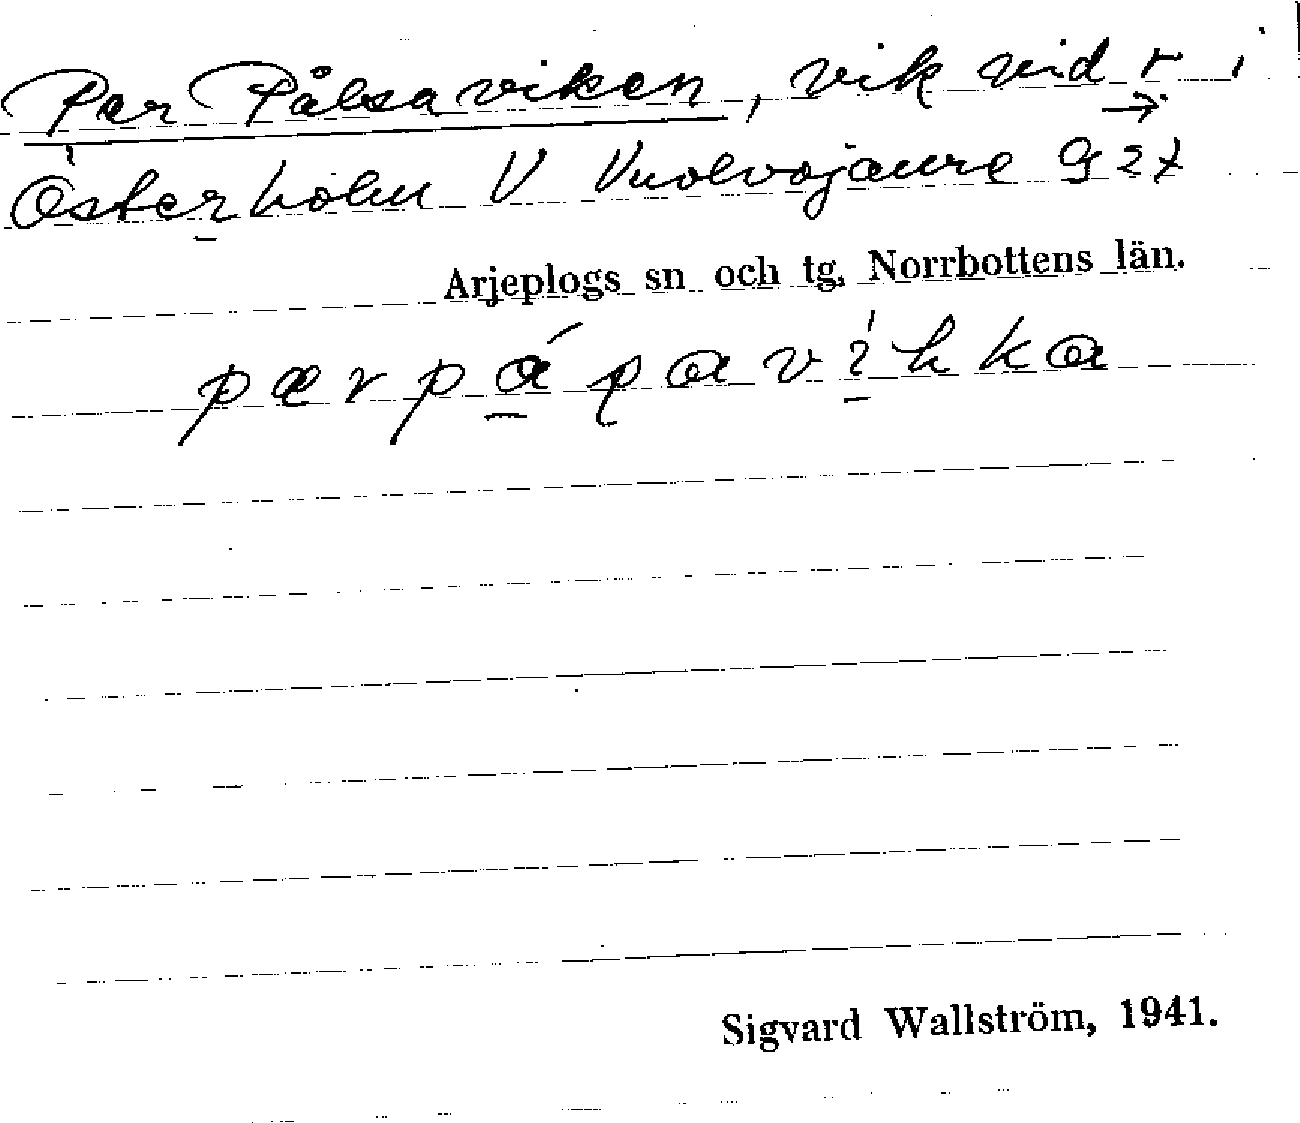 Per Pålsaviken, vik vid r i
Österholm V Vuolvojaure 9 27
Arjeplogs sn och tg, Norrbottens län.
Sigvard Wallström, 1941.